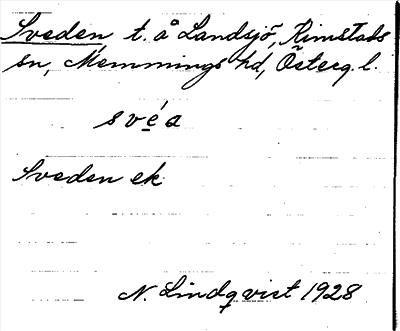 Sveden t. å Landsjö, Rimstads
sn, Memmings hd, Österg. l.
svéa
Sveden ek
N. Lindqvist 1928